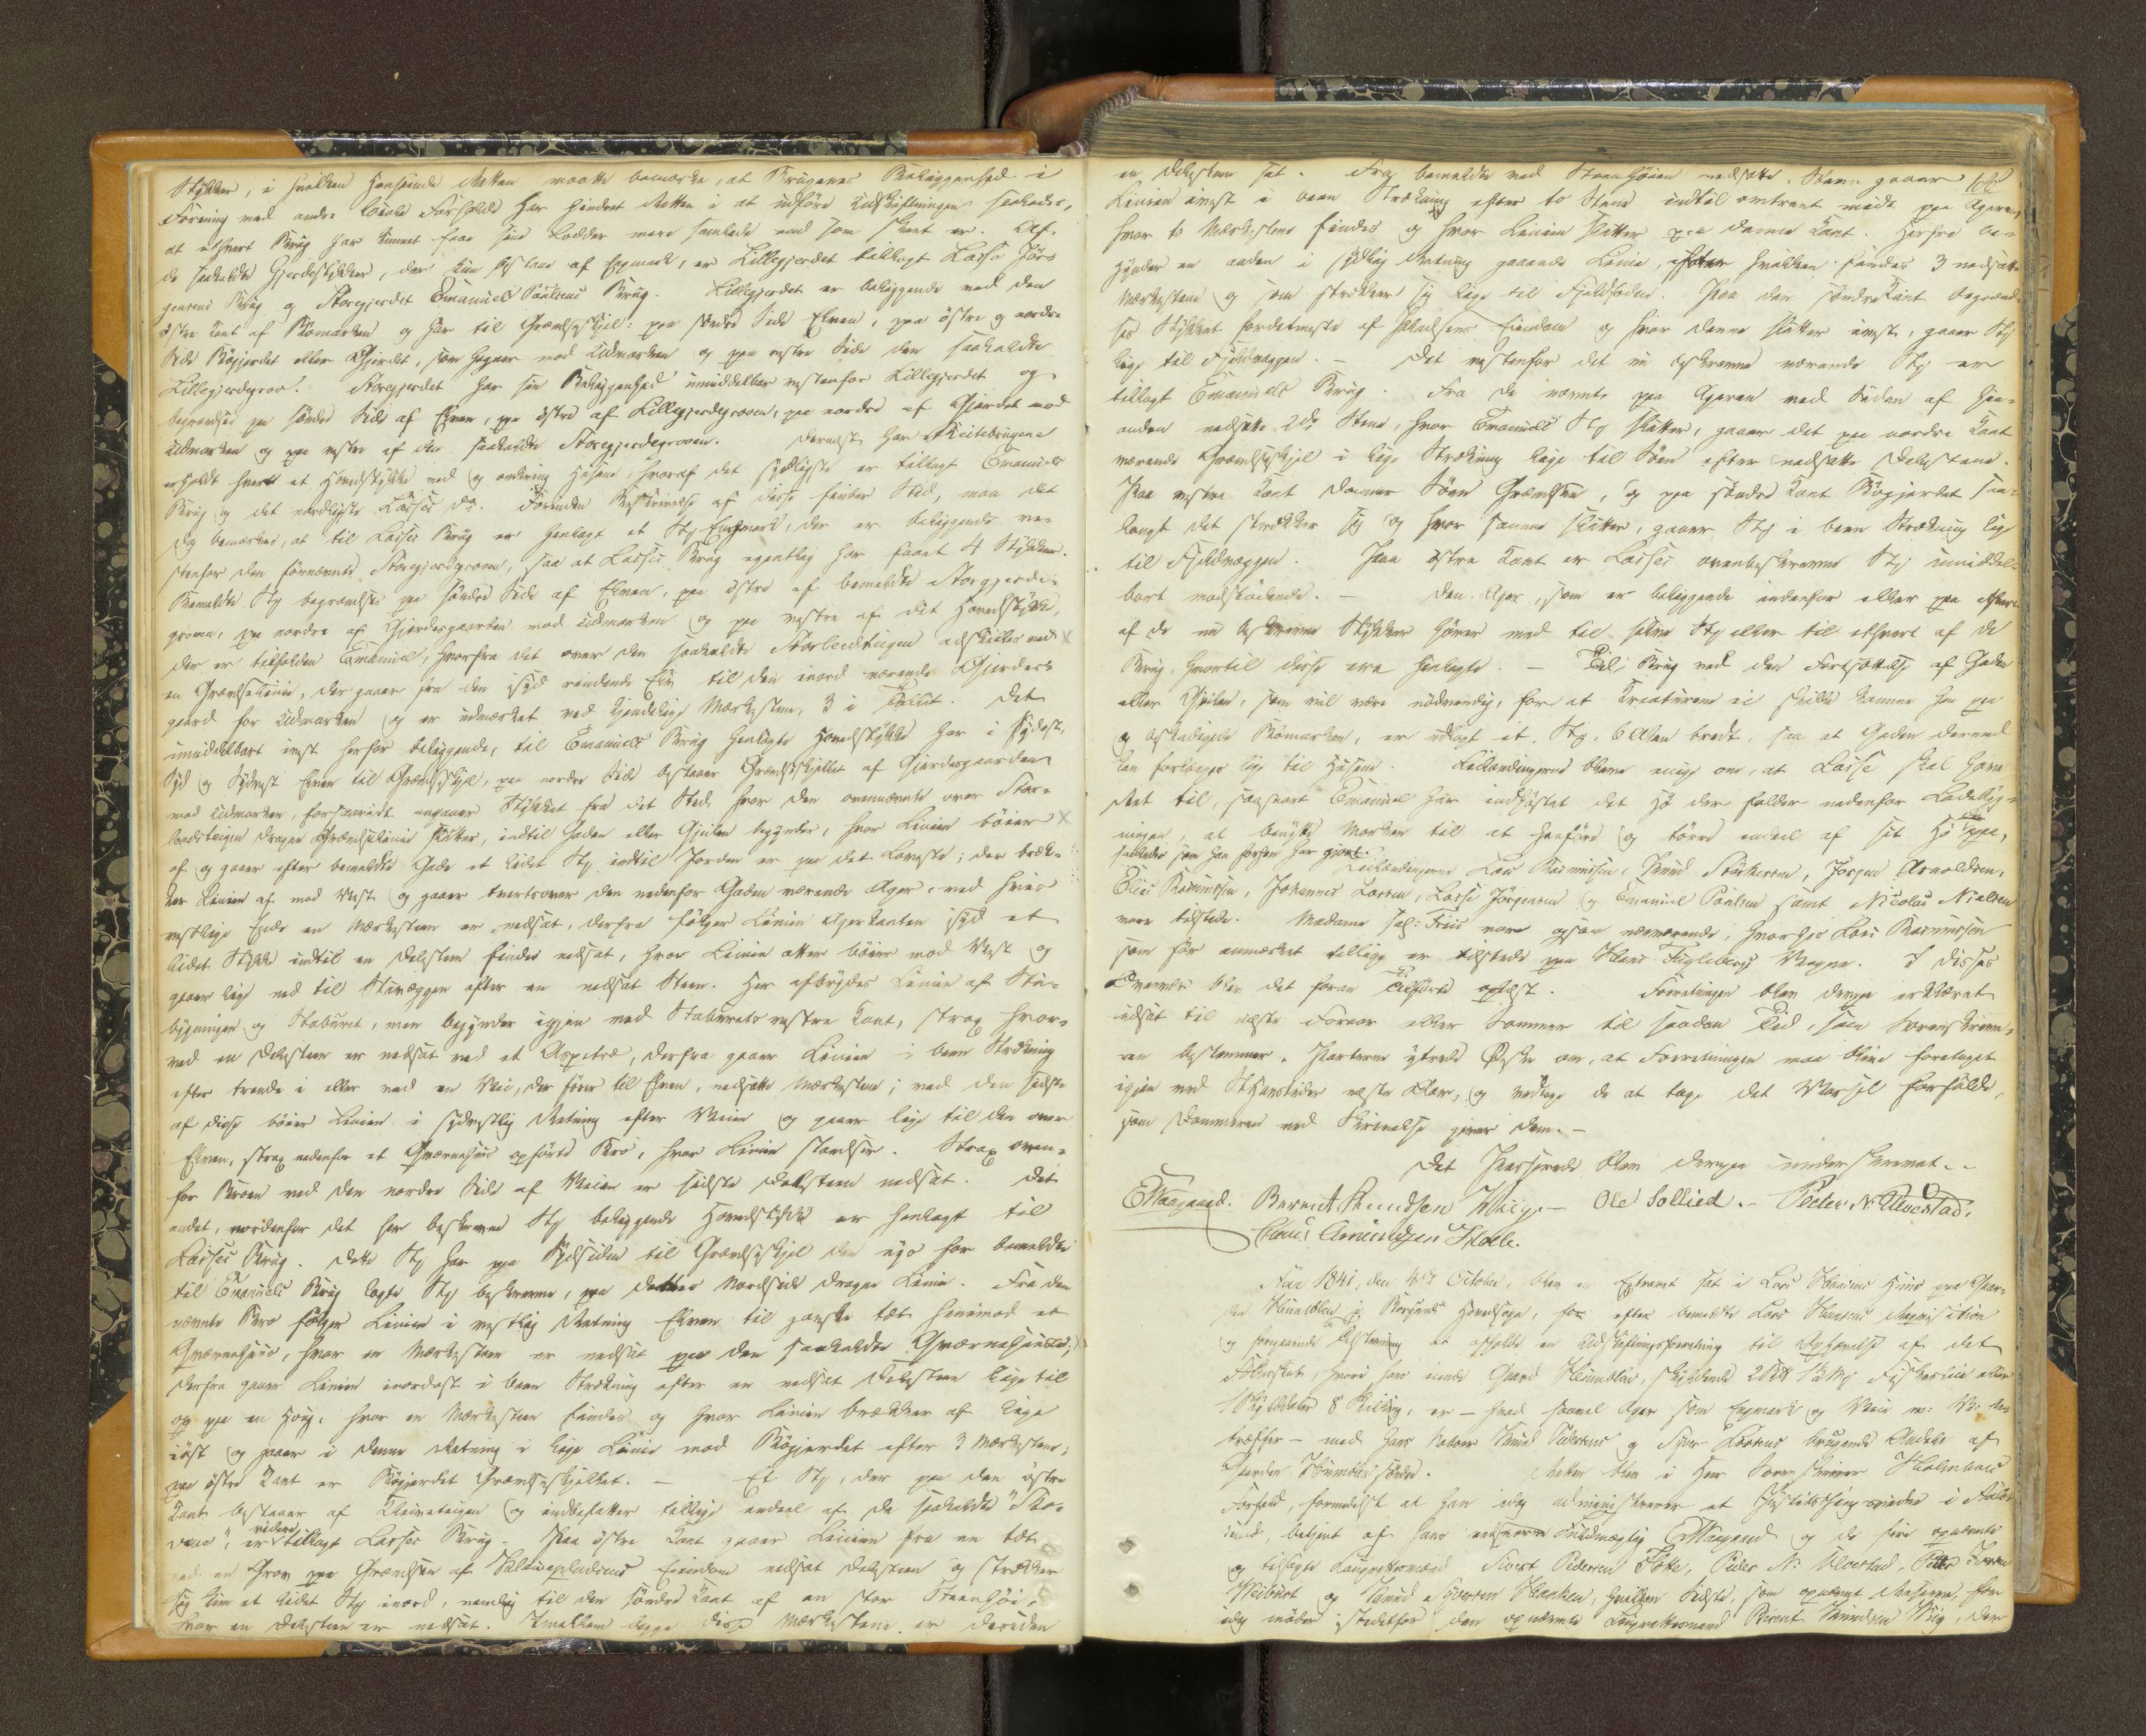 Stykker, i hvilken Henseende Retten maatte bemærke, at Brugenes Beliggenhed i
Forening med andre locale Forholde har hindret Retten i at udføre Udskiftningen saaledes,
at ethvert Brug har kunnet faae sine Lodder mere samlede end som skeet er. Af
de saakaldte Gjerdestykker, der kun bestaae af Engmark, er Lillegjerdet tillagt Lasse Jør-
gensens Brug og Storegjerdet Emanuel Poulsens Brug. Lillegjerdet er beliggende ved den
østre Kant af Bømarken og har til Grændseskjel: paa søndre Side Elven, paa østre og nordre
Side Bøgjerdet eller Gjerdet, som hegner mod Udmarken og paa vestre Side den saakaldte
Lillegjerdegrov. Storegjerdet har sin Beliggenhed umiddelbar vestenfor Lillegjerdet og
begrændses paa søndre Side af Elven, paa østre af Lillegjerdegroven, paa nordre af Gjerdet mod
Udmarken og paa vestre af den saakaldte Storegjerdegroven. Dernæst har Leilebrugene
erholdt hvert et Hovedstykke ved og omkring Husene, hvoraf det sydligste er tillagt Emanuels
Brug og det nordligste Lasses do. Forinden Beskrivelse af disse finder Sted, maa det
dog bemærkes, at til Lasses Brug er henlagt et Stk Engmark, der er beliggende ve-
stenfor den førnævnte Storegjerdegroven, saa at Lasses Brug egentlig har faaet 4 Stykker.
Bemeldte Stk begrændses paa søndre Side af Elven, paa østre af bemeldte Storegjerde-
groven, paa nordre af Gjerdesgaarden mod Udmarken og paa vestre af det Hovedstykke,
der er tilfalden Emanuel, hvorfra det over den saakaldte Storleedteigen adskilles ved
en Grændselinie, der gaaer fra den i Syd rindende Elv til den i Nord værende Gjerdes-
gaard for Udmarken og er udmærket ved kjendelige Mærkestene, 3 i Tallet. Det
umiddelbart vest herfor beliggende, til Emanuels Brug henlagte Hovedstykke har i Sydost,
Syd og Sydvest Elven til Grændseskjel, paa nordre Side bestaaer Grændseskjellet af Gjerdesgaarden
mod Udmarken, forsaavidt angaaer Stykket fra det Sted, hvor den ovennævnte over Stor-
leedteigen dragne Grændselinie slutter, indtil Gaden eller Gjeilen begynder, hvor Linien bøier
af og gaaer efter bemeldte Gade et lidet Stk indtil Jorden er paa det Laveste; der bræk-
ker Linien af mod Vest og gaaer tvertsover den nedenfor Gaden værende Ager, ved hvis
vestlige Ende en Mærkesteen er nedsat, derfra følger Linien Agerkanten i Syd et
lidet Stykke indtil en Delesteen findes nedsat, hvor Linien atter bøier mod Vest og
gaaer lige ned til Stuvæggen efter en nedsat Steen. Her afbrydes Linien af Stu-
bygningen og Staburet, men begynder igjen ved Staburets vestre Kant, strax hvor-
ved en Delesteen er nedsat ved et Aspetræ, derfra gaaer Linien i been Strækning
efter trende i eller ved en Vei, der fører til Elven, nedsatte Mærkestene; ved den sidste
af disse bøier Linien i sydvestlig Retning efter Veien og gaaer lige til den over
Elven, strax nedenfor et Qværnehuus opførte Bro, hvor Linien standser. Strax oven-
for Broen ved den nordre Side af Veien er sidste Delesteen nedsat. Det
andet, nordenfor det her beskrevne Stk beliggende Hovedstykke er henlagt til
Lasses Brug. Dette Stk har paa Sydsiden til Grændseskjel den nys for bemeldte
til Emanuels Brug lagte Stk beskrevne, paa dettes Nordside dragne Linie. Fra den
nævnte Bro følger Linien i vestlig Retning Elven til ganske tæt henimod et
Qværnehuus, hvor en Mærkesteen er nedsat paa den saakaldte Qværnehuus;
derfra gaaer Linien i nordost i been Strækning efter en nedsat Delesteen lige til
op paa en Houg, hvor en Mærkesteen findes og hvor Linien brækker af lige
i øst og gaaer i denne Retning i lige Linie mod Bøgjerdet efter 3 Mærkestene;
paa østre Kant er Bøgjerdet Grændseskjellet. — Et Stk, der paa den østre
Kant bestaaer af Kleiveteigen og indbefatter tillige endeel af de saakaldte "Mo-
er videre tillagt Lasses Brug. Paa østre Kant gaaer Linien fra en tæt
ved en Grov paa Grændsen af Eiendom nedsat Delesteen og strækker
sig kun et lidet Stk i nord, nemlig til den søndre Kant af en stor Steenhøi,
hvor en Delesteen er nedsat. Imellem begge disse Mærkestene er desuden
en Delesteen sat. Fra bemeldte ved Steenhøien nedsatte Steen gaaer
Linien i vest i been Strækning efter to Stene indtil omtrent midt paa Ageren,
hvor to Mærkestene findes og hvor Linien slutter paa denne Kant. Herfra be-
gynder en anden i sydlig Retning gaaende Linie, efter hvilken findes 3 nedsatte
Mærkestene og som strækker sig lige til Fjeldfoden. Paa den søndre Kant begrænd-
ses Stykket fordetmeste af Eiendom og hvor denne slutter i vest, gaaer Stk
lige til Fjeldvæggen. — Det vestenfor det nu beskrevne værende Stk er
tillagt Emanuels Brug. Fra de nævnte paa Ageren ved Siden af hin-
anden nedsatte 2de Stene, hvor Emanuels Stk slutter, gaaer det paa nordre Kant
værende Grændseskjel i lige Strækning lige til Søen efter nedsatte Delestene.
Paa vestre Kant danner Søen Grændsen, og paa søndre Kant Bøgjerdet saa-
langt det strækker sig og hvor samme slutter, gaaer Stk i been Strækning lige
til Fjeldvæggen. Paa østre Kant er Lasses ovenbeskrevne Stk umiddel-
bart modstødende. — Den Ager, som er beliggende indenfor eller paa ethvert
af de nu beskrevne Stykker hører med til samme Stk eller til ethvert af de
Brug, hvortil disse ere henlagte. — Til Brug ved den Fortsættelse af Gaden
eller Gjeilen, som vil være nødvendig, for at Creaturene ei skulle komme hen paa
og beskadigede Bømarken, er udlagt et Stk, 6 Alen bredt, saa at Gaden derved
kan forlænges lige til Husene. Leilændingerne bleve enige om, at Lasse skal have
Ret til, saasnart Emanuel har indhøstet det Hø der falder nedenfor Ladebyg-
ningen, at benytte Marken til at henføre og tørre endeel af sit Hø paa,
saaledes som han forhen har gjort.
Leilændingerne Lars Rasmussen, Knud , Jørgen Arnoldsen,
Elias Rasmussen, Johannes Larsen, Lasse Jørgensen og Emanuel Poulsen samt Nicolai Nielsen
vare tilstede. Madame Sal: Friis var ogsaa nærværende, hvorhos Lars Rasmussen
som før anmærket tillige er tilstede paa Hans Vegne. I disses
Overvær blev det foran Tilførte oplæst. Forretningen blev derpaa erklæret
udsat til næste Foraar eller Sommer til saadan Tid, som Sorenskrive-
ren bestemmer. Parterne ytrede Ønske om, at Forretningen maa blive foretaget
igjen ved St Hanstider næste Aar, og vedtoge de at tage det Varsel forfulde,
som Dommeren ved Skrivelse giver dem. —
Det Passerede blev derpaa underskrevet. —
EMaagaard. Berent Knudsen Wiig. — Ole Sollied. — Peder N. Ulvestad.
Claus Amundsen Hole.
Aar 1841, den 4de October, blev en Extraret sat i Lars Huus paa Gaar-
den Humblen i Borgunds Hovedsogn, for efter bemeldte Lars Requisition
og foregaaende Bestemmelse at afholde en Udskiftningsforretning til Ophævelse af det
Fællesskab, hvori hans Gaard Humblen, skyldende 2 1/2 Fiskerleie eller
1 Skyldaler 8 Skilling, er — hvad saavel Ager som Engmark og Veie m: V: be-
træffer — med hans Naboer Knud Pedersens og brugende Andele af
Gaarden Humblen søndre. Retten blev i Herr Sorenskriver Holmboes
Forfald, formedelst at han idag administrerer et Justitsthing nede i
betjent af hans edsvorne Fuldmægtig EMaagaard og de fire opnævnte
og tilsagte Laugrettesmænd Sivert Pedersen , Peder N: Ulvestad, Peder
og Knud , hvilken Sidste, som opnævnt Reserve, for
idag møder istedetfor den opnævnte Laugrettesmand Berent Knudsen Wiig, der